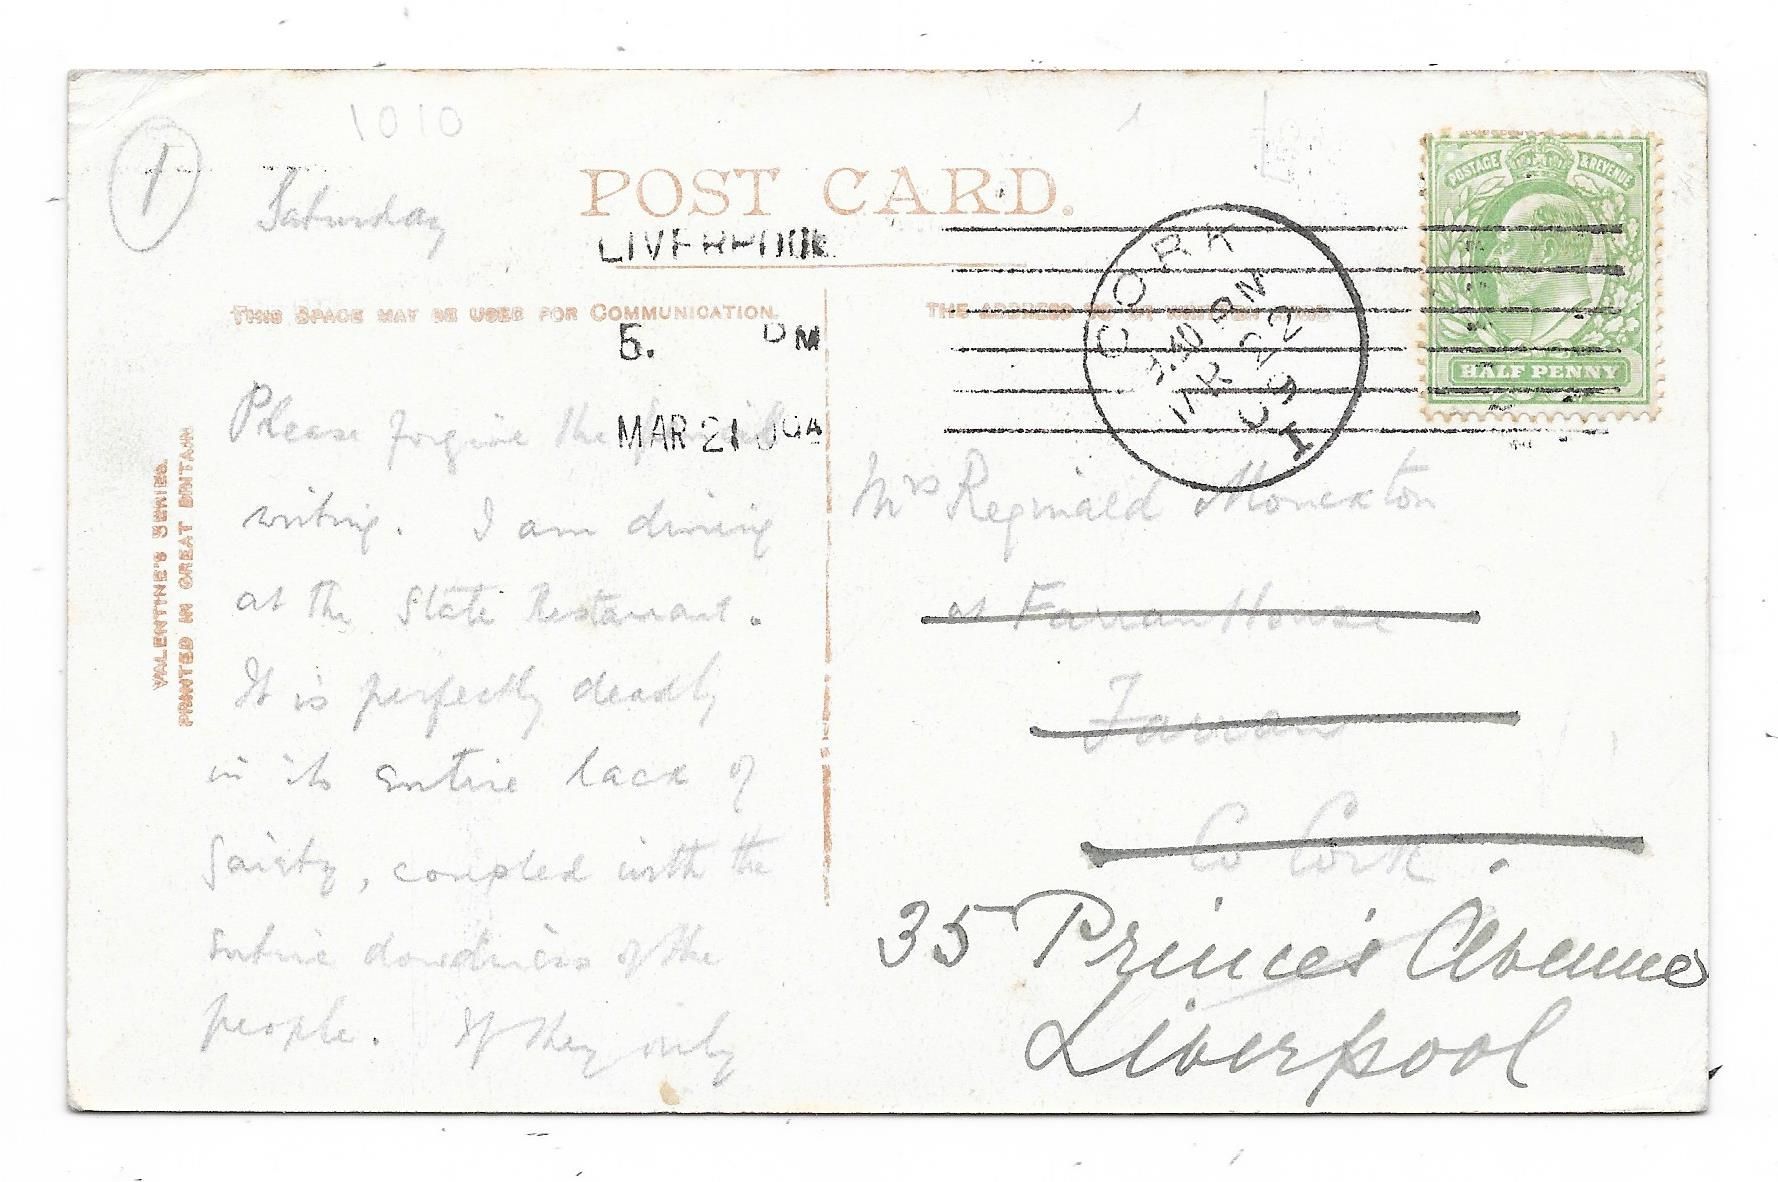 1010
1
Saturday
POST CARD.
LIVERPOOL
5. PM
MAR 21 09
THIS SPACE MAY BE USED FOR COMMUNICATION.
THE ADDRESS TO BE WRITTEN HERE
CORK
PM
MR 22
09
I
POSTAGE & REVENUE
HALF PENNY
VALENTINE'S SERIES.
PRINTED IN GREAT BRITAIN
Please forgive the pencil
writing. I am dining
at the State Restaurant.
It is perfectly deadly
in its entire lack of
Gaiety, coupled with the
entire dowdiness of the
people. If they only
Mrs Reginald Monckton
at Farran House
Farran
Co Cork.
35 Princes Avenue
Liverpool